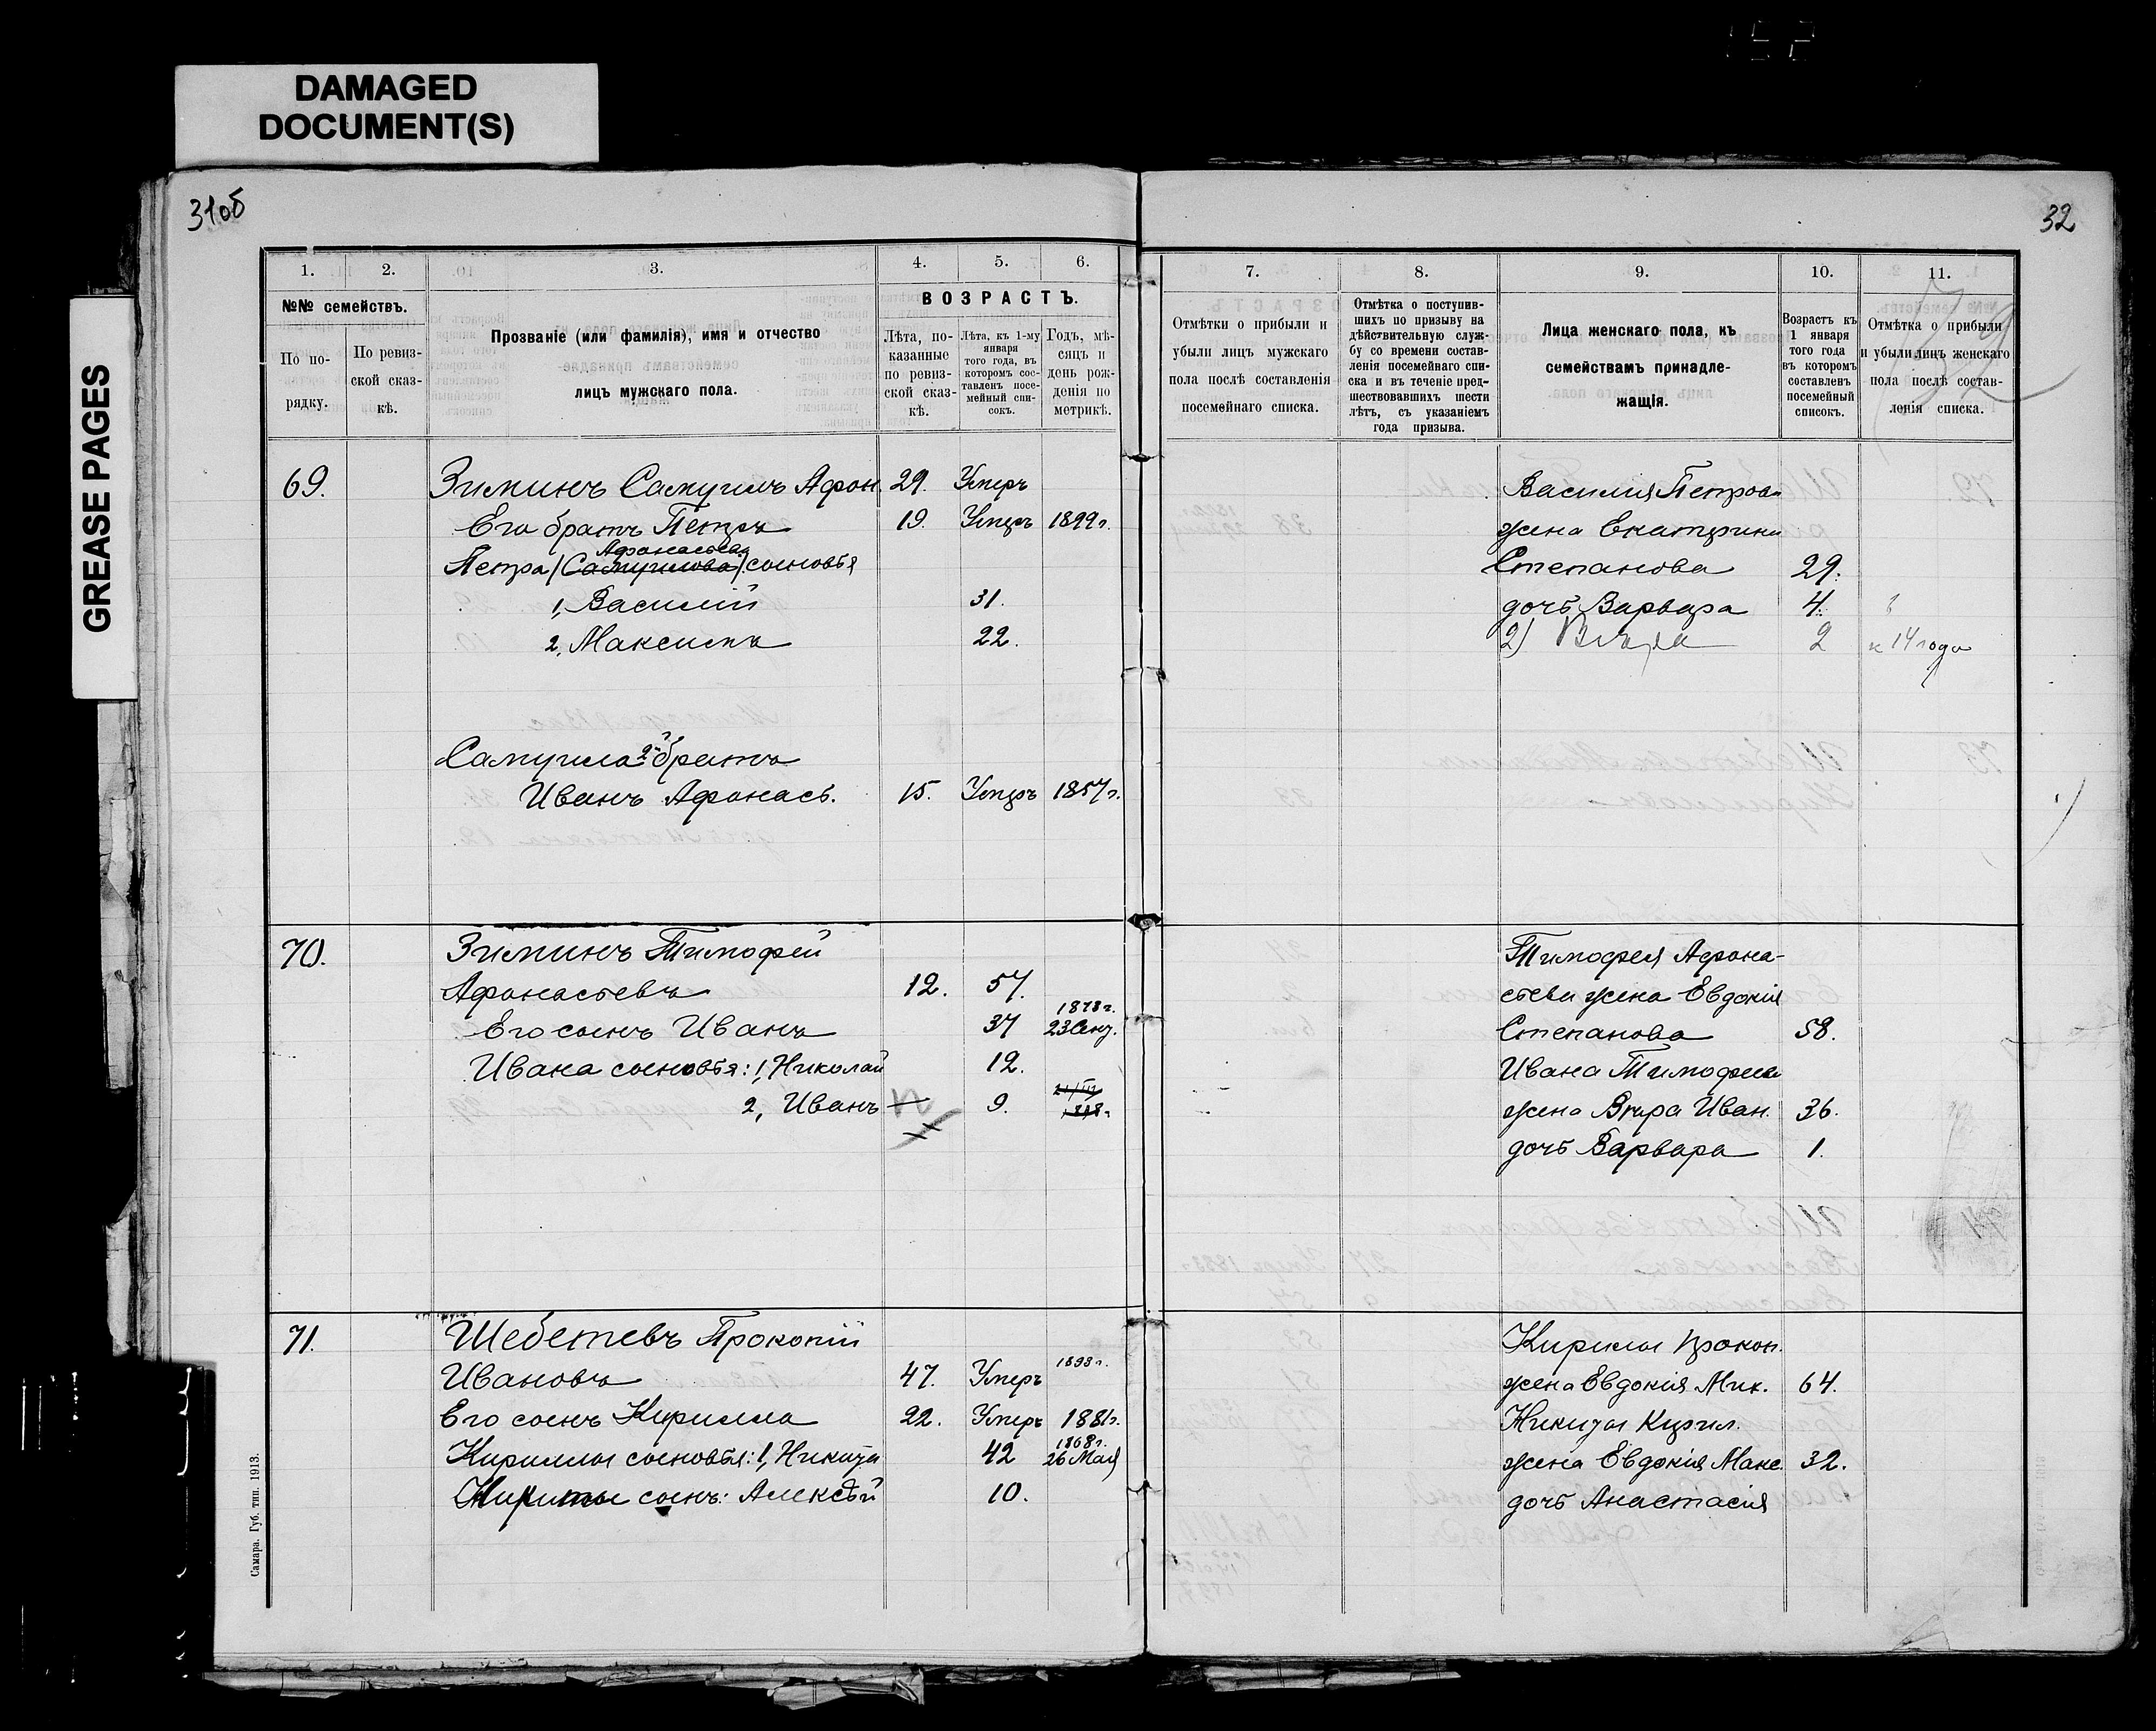 DAMAGED
DOCUMENT(S)
GREASE PAGES
31об
32
1.
2.
3.
4.
5.
6.
№№ семействъ.
По по-
рядку.
По ревиз-
ской сказ-
кѣ.
Прозваніе (или фамилія), имя и отчество
лицъ мужскаго пола.
ВОЗРАСТЪ.
Лѣта, по-
казанные
по ревиз-
ской сказ-
кѣ.
Лѣта, къ 1-му
января
того года, въ
которомъ сос-
тавленъ посе-
мейный спи-
сокъ.
Годъ, мѣ-
сяцъ и
день рож-
денія по
метрикѣ.
69.
Зиминъ Самуилъ Афон. 29. Умеръ
Его братъ Петръ 19. Умеръ 1899 г.
Афонасьева
Петра (Самуилова) сыновья
1, Василій 31.
2, Максимъ 22.
Самуила 2й братъ
Иванъ Афонась. 15. Умеръ 1857 г.
70.
Зиминъ Тимофей
Афонасьевъ 12. 57.
1878 г.
Его сынъ Иванъ 37 23 Сент.
Ивана сыновья: 1, Николай 12.
2, Иванъ — 9.
71.
Шебетевъ Прокопій
1898 г.
Ивановъ 47. Умеръ
Его сынъ Кирилла 22. Умеръ 1881 г.
1868 г.
Кириллы сыновья: 1, Никита 42 26 Мая
Никиты сынъ: Алексѣй 10.
Самара. Губ. тип. 1913.
7.
8.
9.
10.
11.
Отмѣтки о прибыли и
убыли лицъ мужскаго
пола послѣ составленія
посемейнаго списка.
Отмѣтка о поступив-
шихъ по призыву на
дѣйствительную служ-
бу со времени состав-
ленія посемейнаго спи-
ска и въ теченіе пред-
шествовавшихъ шести
лѣтъ, съ указаніемъ
года призыва.
Лица женскаго пола, къ
семействамъ принадле-
жащія.
Возрастъ къ
1 января
того года
въ которомъ
составленъ
посемейный
списокъ.
Отмѣтка о прибыли
и убыли лицъ женскаго
пола послѣ состав-
ленія списка.
Василія Петрова
жена Екатерина
Степанова 29.
дочь Варвара 4.
2) Вѣра 2 к 14 году
Тимофея Афона-
сьева жена Евдокія
Степанова 58.
Ивана Тимофеев
жена Вѣра Иван. 36.
дочь Варвара 1.
Кириллы Прокоп.
жена Евдокія Мик. 64.
Никиты Кирил.
жена Евдокія Макс. 32.
дочь Анастасія